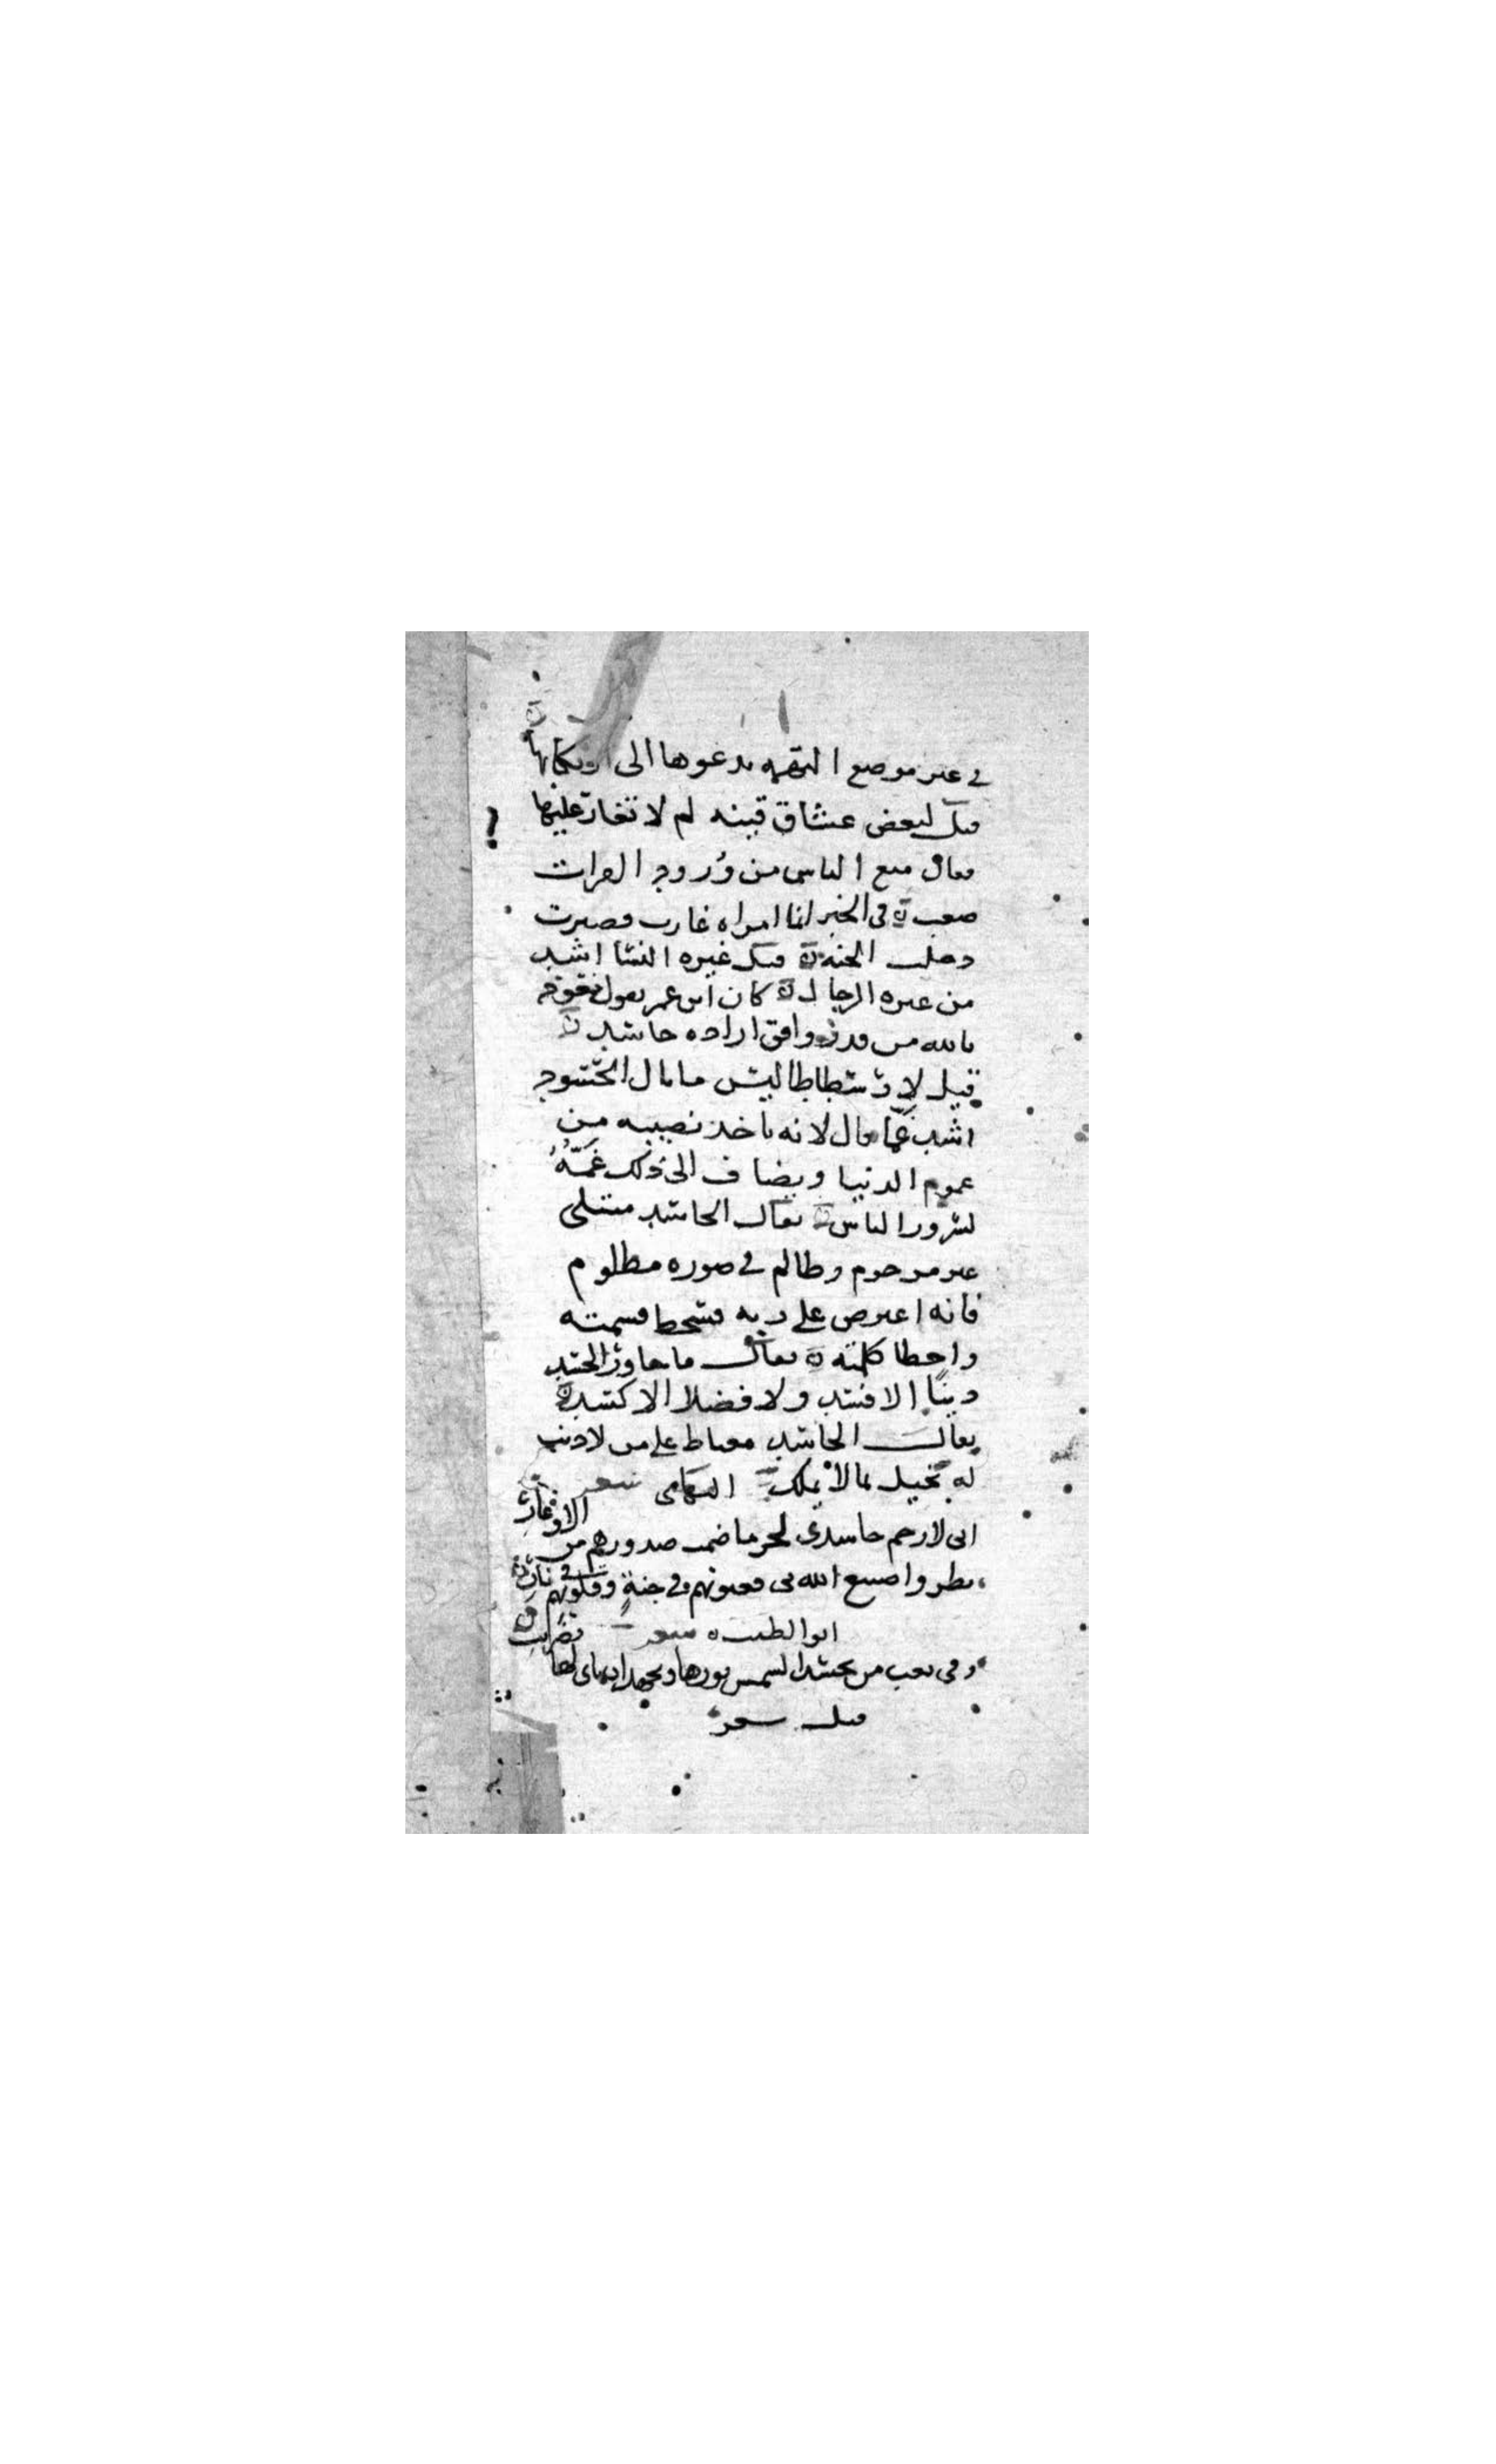 في غير موضع التهمه يدعوها الى ارتكابها
قيل لبعض عشاق قينه لم لا تغار عليها
فقال منع الناس من ورود الفرات
صعب في الخبر ايما امراه غارت فصبرت
دخلت الجنه قيل غيره النسا اشد
من غيره الرجال كان ابن عمر يقول نعوذ
بالله من قدر وافق اراده حاسد
قيل لارسطاطاليس ما بال الحسود
اشد غما قال لانه ياخذ نصيبه من
غموم الدنيا ويضاف الى ذلك غمه
لسرور الناس يقال الحاسد مبتلى
غير مرحوم وظالم في صوره مظلوم
فانه اعترض على ربه فسخط قسمته
واخطا كلمته يقال ما جاور الحسد
دينا الا افسد ولا فضلا الا كسد
يقال الحاسد مغتاظ على من لا ذنب
له بخيل بما لا يملك التهامي شعر
اني لارحم حاسدي لحر ما ضمت صدورهم من الاوغار
نظروا صنيع الله بي فعيونهم في جنة وقلوبهم في نار
ابو الطيب شعر
وفي تعب من يحسد الشمس نورها ويجهد ان ياتي لها بضريب
قيل شعر